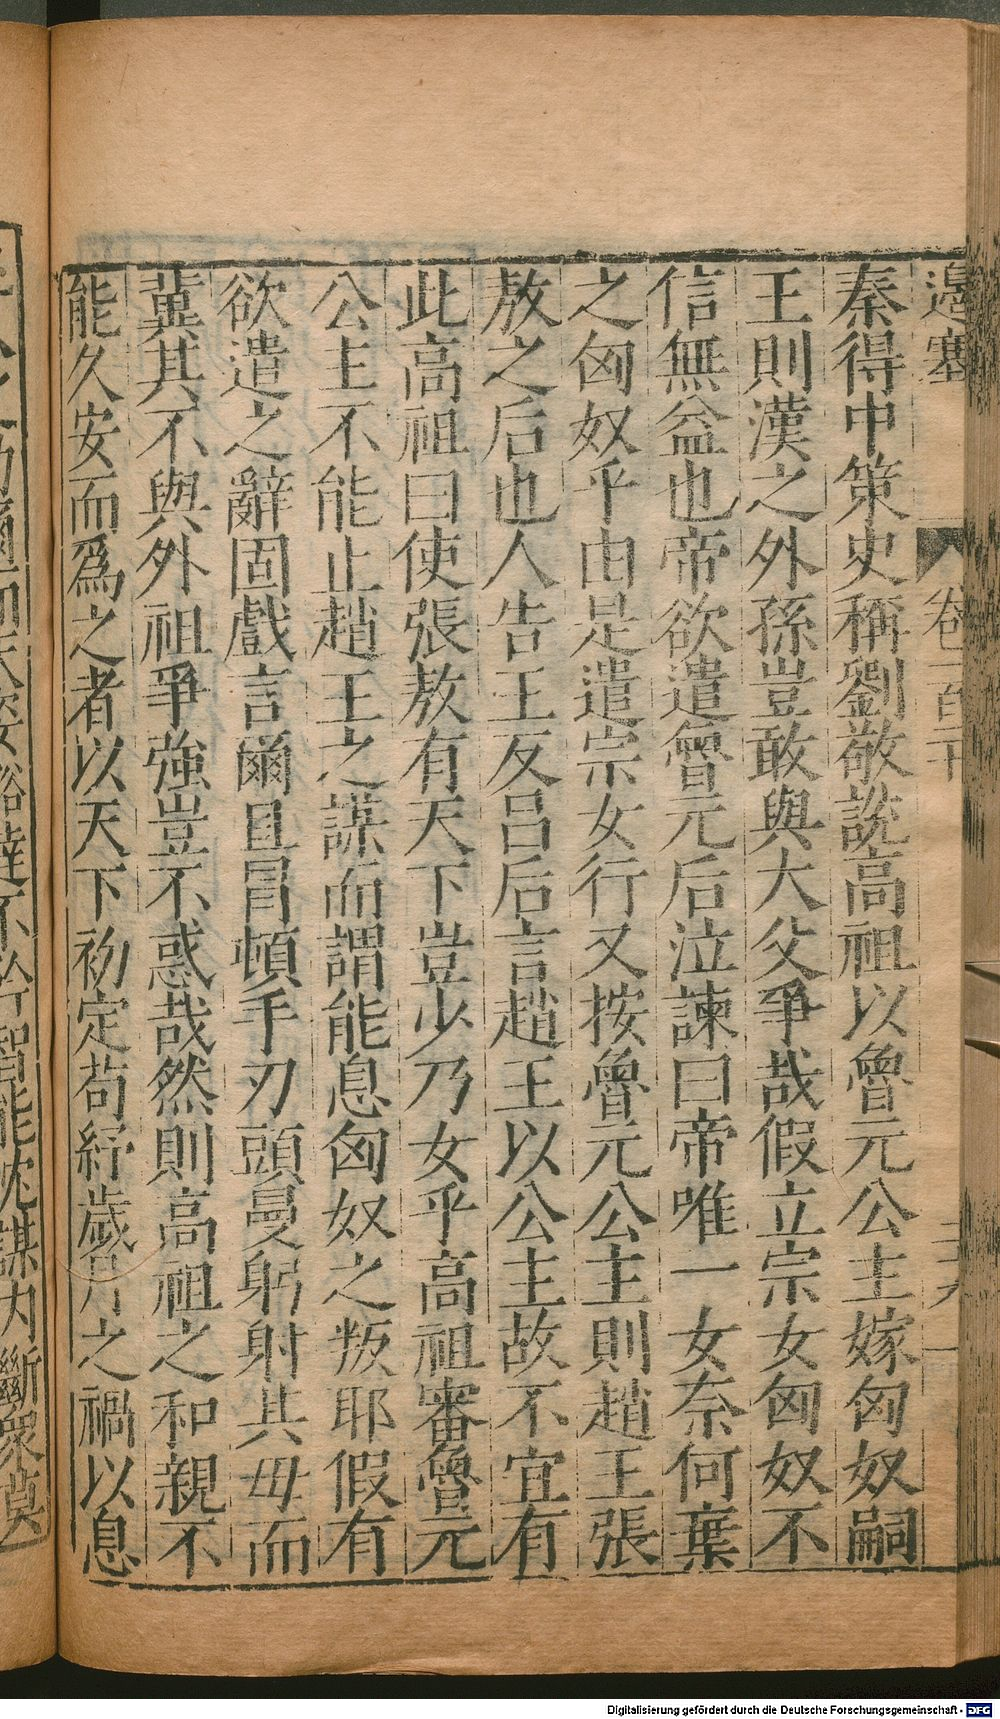 邊塞 卷一百十
秦得中策史稱劉敬說高祖以魯元公主嫁匈奴嗣
王則漢之外孫豈敢與大父爭哉假立宗女匈奴不
信無益也帝欲遣魯元后泣諫曰帝唯一女奈何棄
之匈奴乎由是遣宗女行又按魯元公主則趙王張
敖之后也人告王反呂后言趙王以公主故不宜有
此高祖曰使張敖有天下豈少乃女乎高祖審魯元
公主不能止趙王之謀而謂能息匈奴之叛耶假有
欲遣之辭固戲言爾且冐頓手刃頭曼躬射其母而
冀其不與外祖爭強豈不惑哉然則高祖之和親不
能久安而爲之者以天下初定苟紓歲月之禍以息
Digitalisierung gefördert durch die Deutsche Forschungsgemeinschaft - DFG